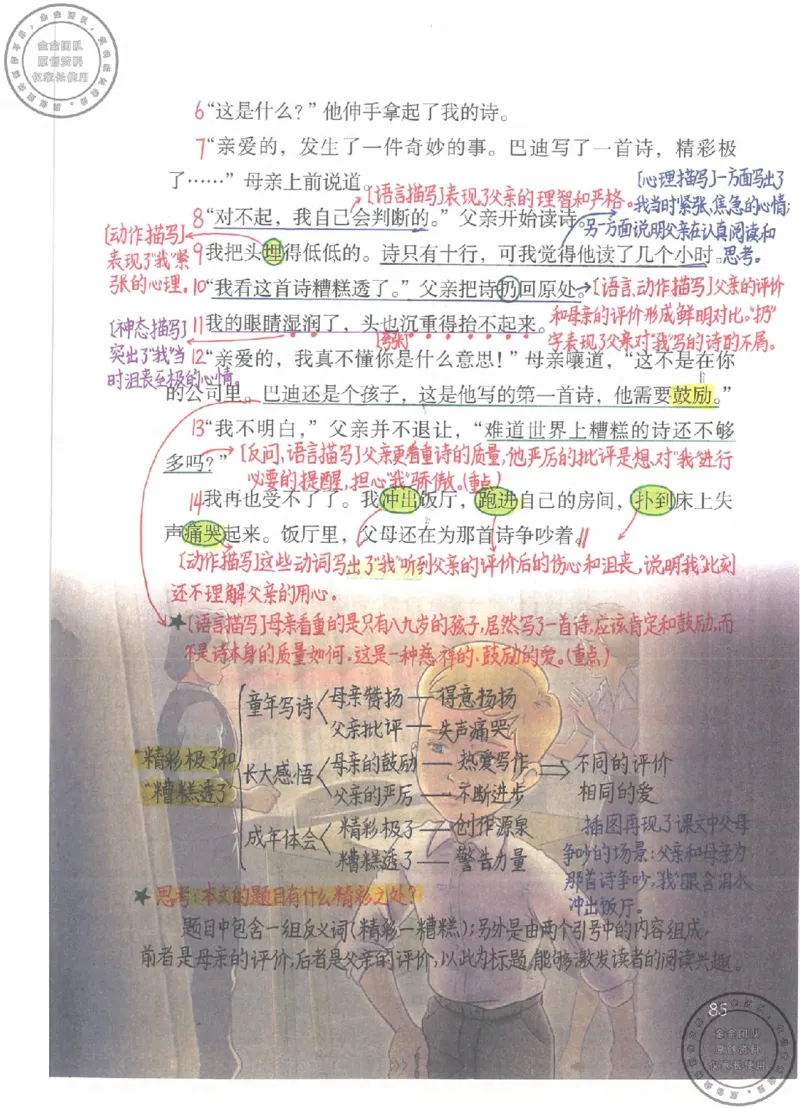 金金团队
原创资料
仅家长使用
6“这是什么？”他伸手拿起了我的诗。
7“亲爱的，发生了一件奇妙的事。巴迪写了一首诗，精彩极
了……”母亲上前说道。
[语言描写]表现了父亲的理智和严格。
[心理描写]一方面写出了
我当时紧张、焦急的心情；
另一方面说明父亲在认真阅读和
思考。
8“对不起，我自己会判断的。”父亲开始读诗。
[动作描写]
表现了“我”紧
张的心理。
9我把头埋得低低的。诗只有十行，可我觉得他读了几个小时。
10“我看这首诗糟糕透了。”父亲把诗扔回原处。
[语言、动作描写]父亲的评价
和母亲的评价形成鲜明对比。“扔”
字表现了父亲对“我”写的诗的不屑。
[神态描写]
突出了“我”当
时沮丧至极的心情。
11我的眼睛湿润了，头也沉重得抬不起来。
[夸张]
12“亲爱的，我真不懂你是什么意思！”母亲嚷道，“这不是在你
的公司里。巴迪还是个孩子，这是他写的第一首诗，他需要鼓励。”
13“我不明白，”父亲并不退让，“难道世界上糟糕的诗还不够
多吗？”
[反问，语言描写]父亲更看重诗的质量，他严厉的批评是想对“我”进行
必要的提醒，担心“我”骄傲。（重点）
14我再也受不了了。我冲出饭厅，跑进自己的房间，扑到床上失
声痛哭起来。饭厅里，父母还在为那首诗争吵着。
[动作描写]这些动词写出了“我”听到父亲的评价后的伤心和沮丧，说明“我”此刻
还不理解父亲的用心。
★[语言描写]母亲看重的是只有八九岁的孩子，居然写了一首诗，应该肯定和鼓励，而
不是诗本身的质量如何，这是一种慈祥的、鼓励的爱。（重点）
“精彩极了”和
“糟糕透了”
童年写诗
母亲赞扬——得意扬扬
父亲批评——失声痛哭
长大感悟
母亲的鼓励——热爱写作
父亲的严厉——不断进步
成年体会
精彩极了——创作源泉
糟糕透了——警告力量
⇒不同的评价
相同的爱
插图再现了课文中父母
争吵的场景：父亲和母亲为
那首诗争吵，“我”眼含泪水
冲出饭厅。
★思考：本文的题目有什么精彩之处？
题目中包含一组反义词（精彩—糟糕）；另外是由两个引号中的内容组成，
前者是母亲的评价，后者是父亲的评价，以此为标题，能够激发读者的阅读兴趣。
85
金金团队
原创资料
仅家长使用